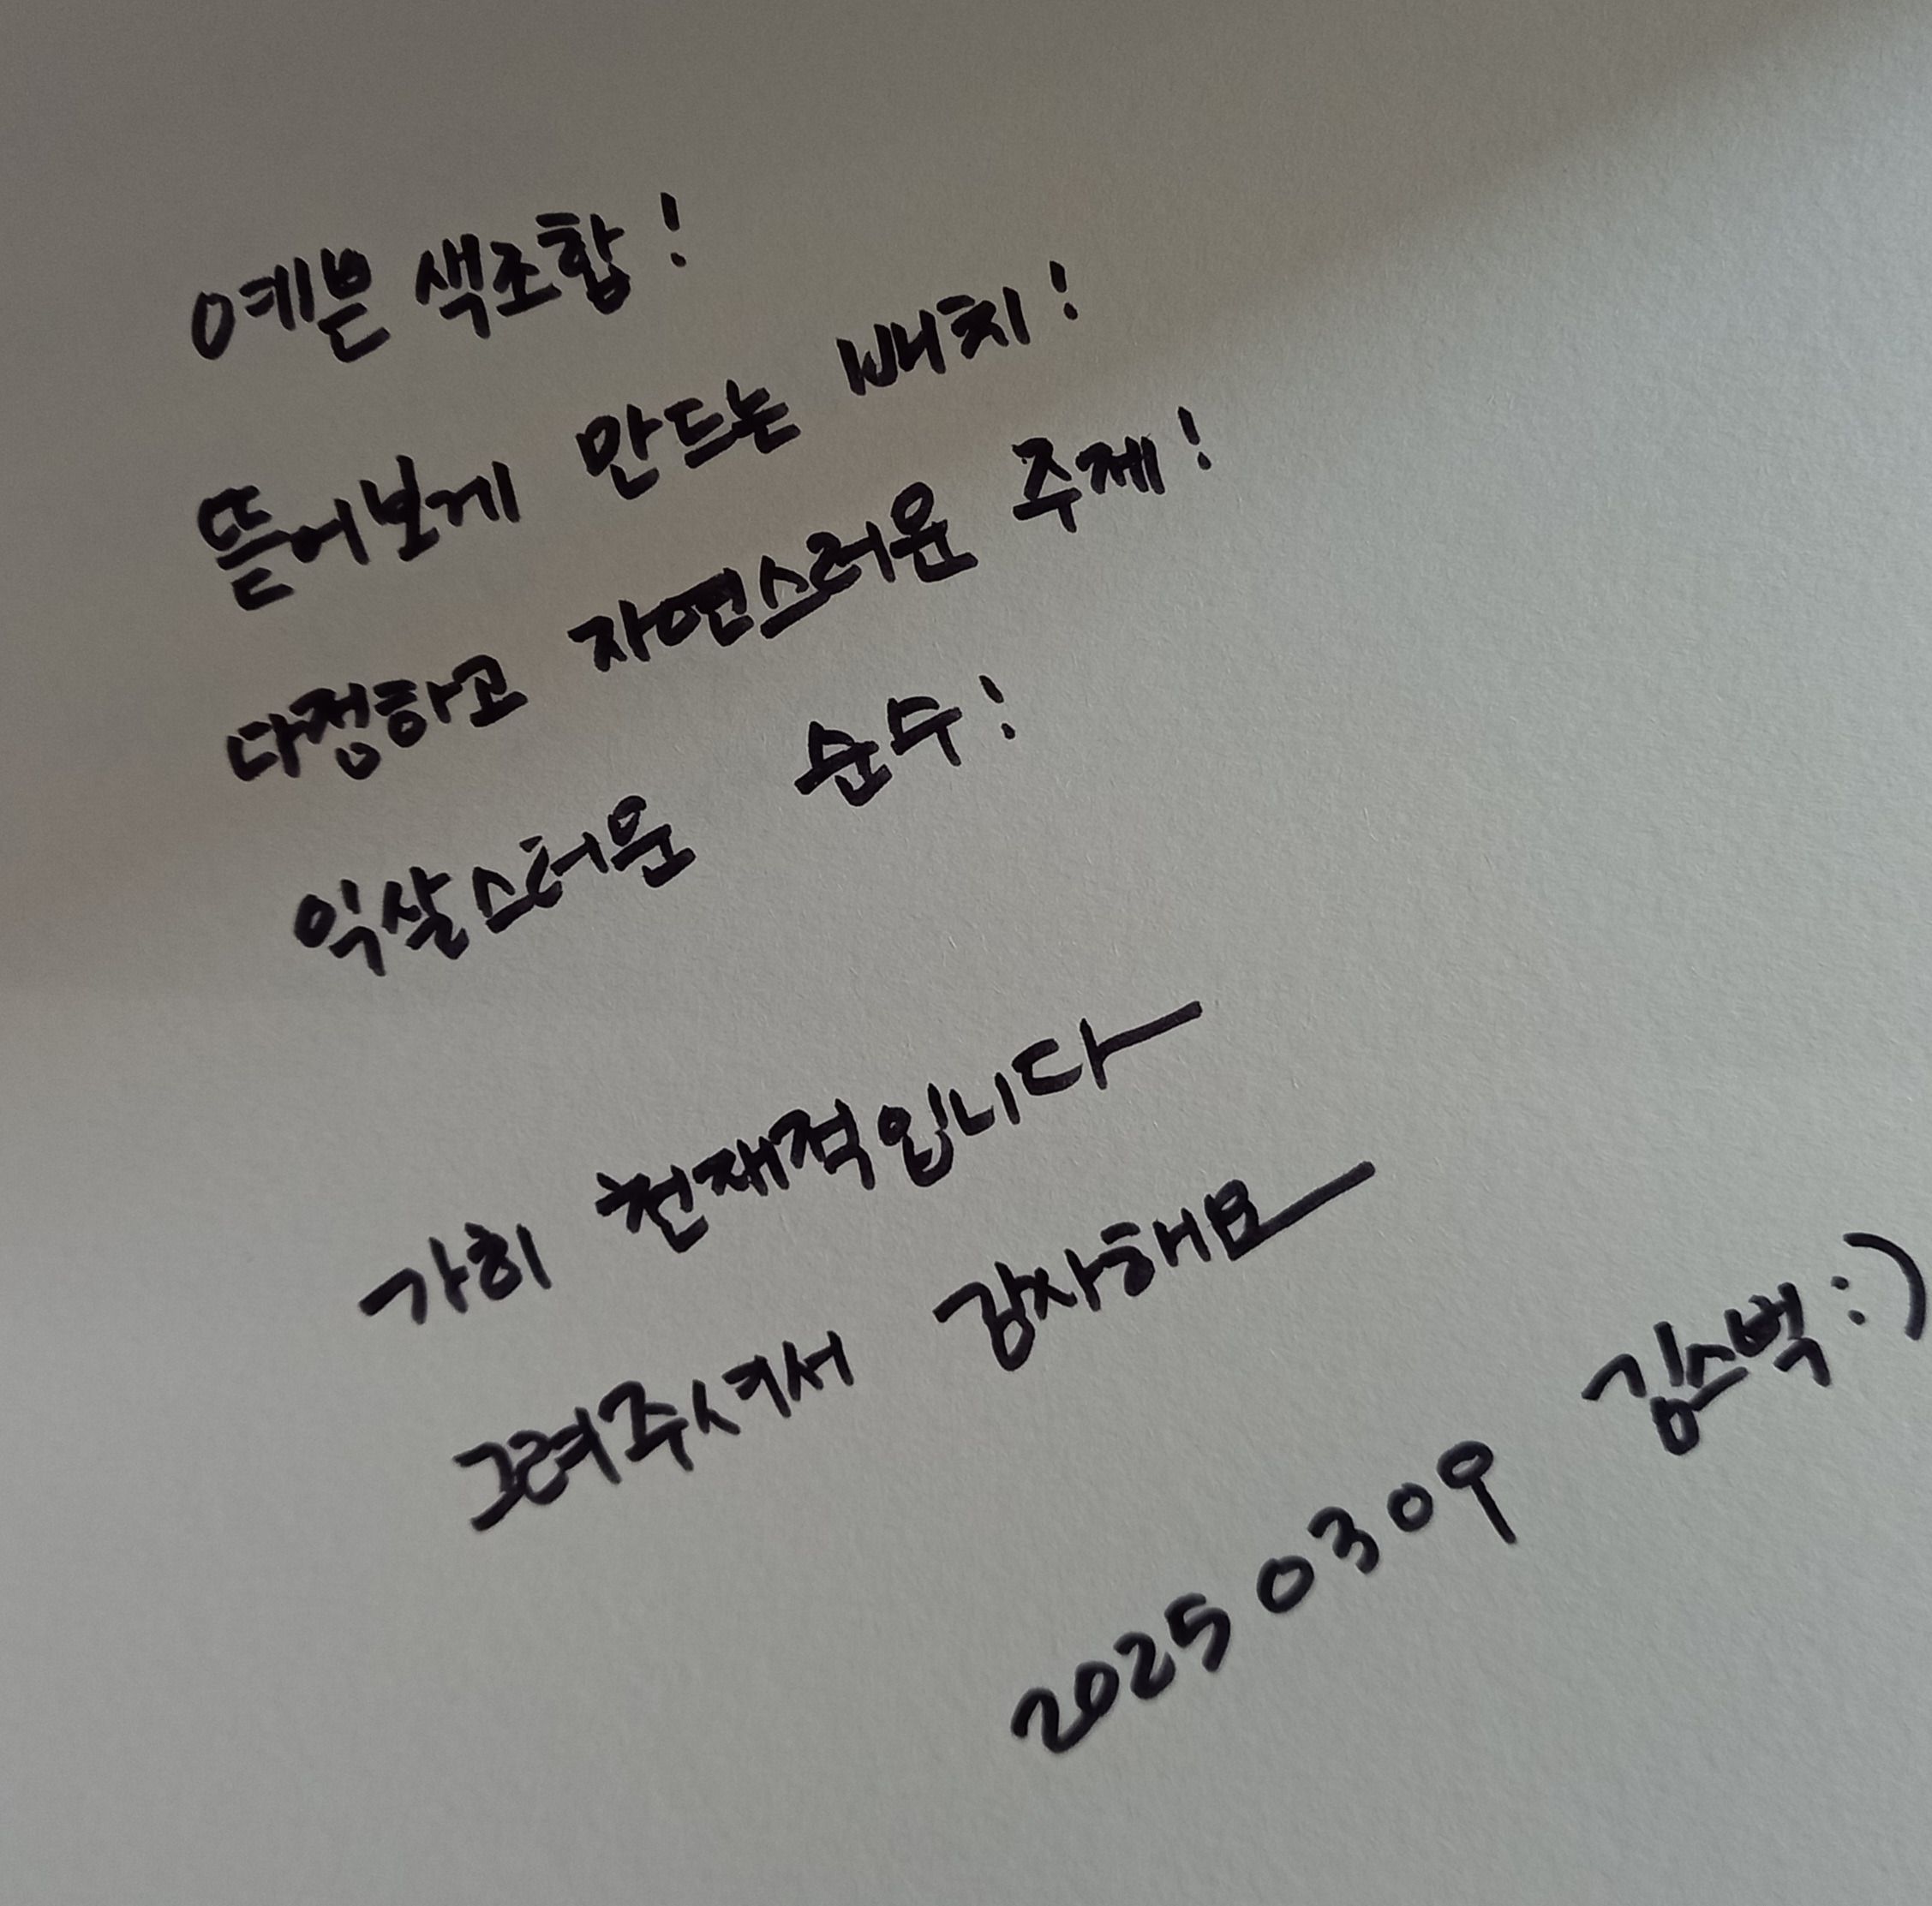 예쁜 색조합!
뜯어보게 만드는 배치!
다정하고 자연스러운 주제!
익살스러운 순수!
가히 천재적입니다
그려주셔서 감사해요
20250309 김스벅 :)